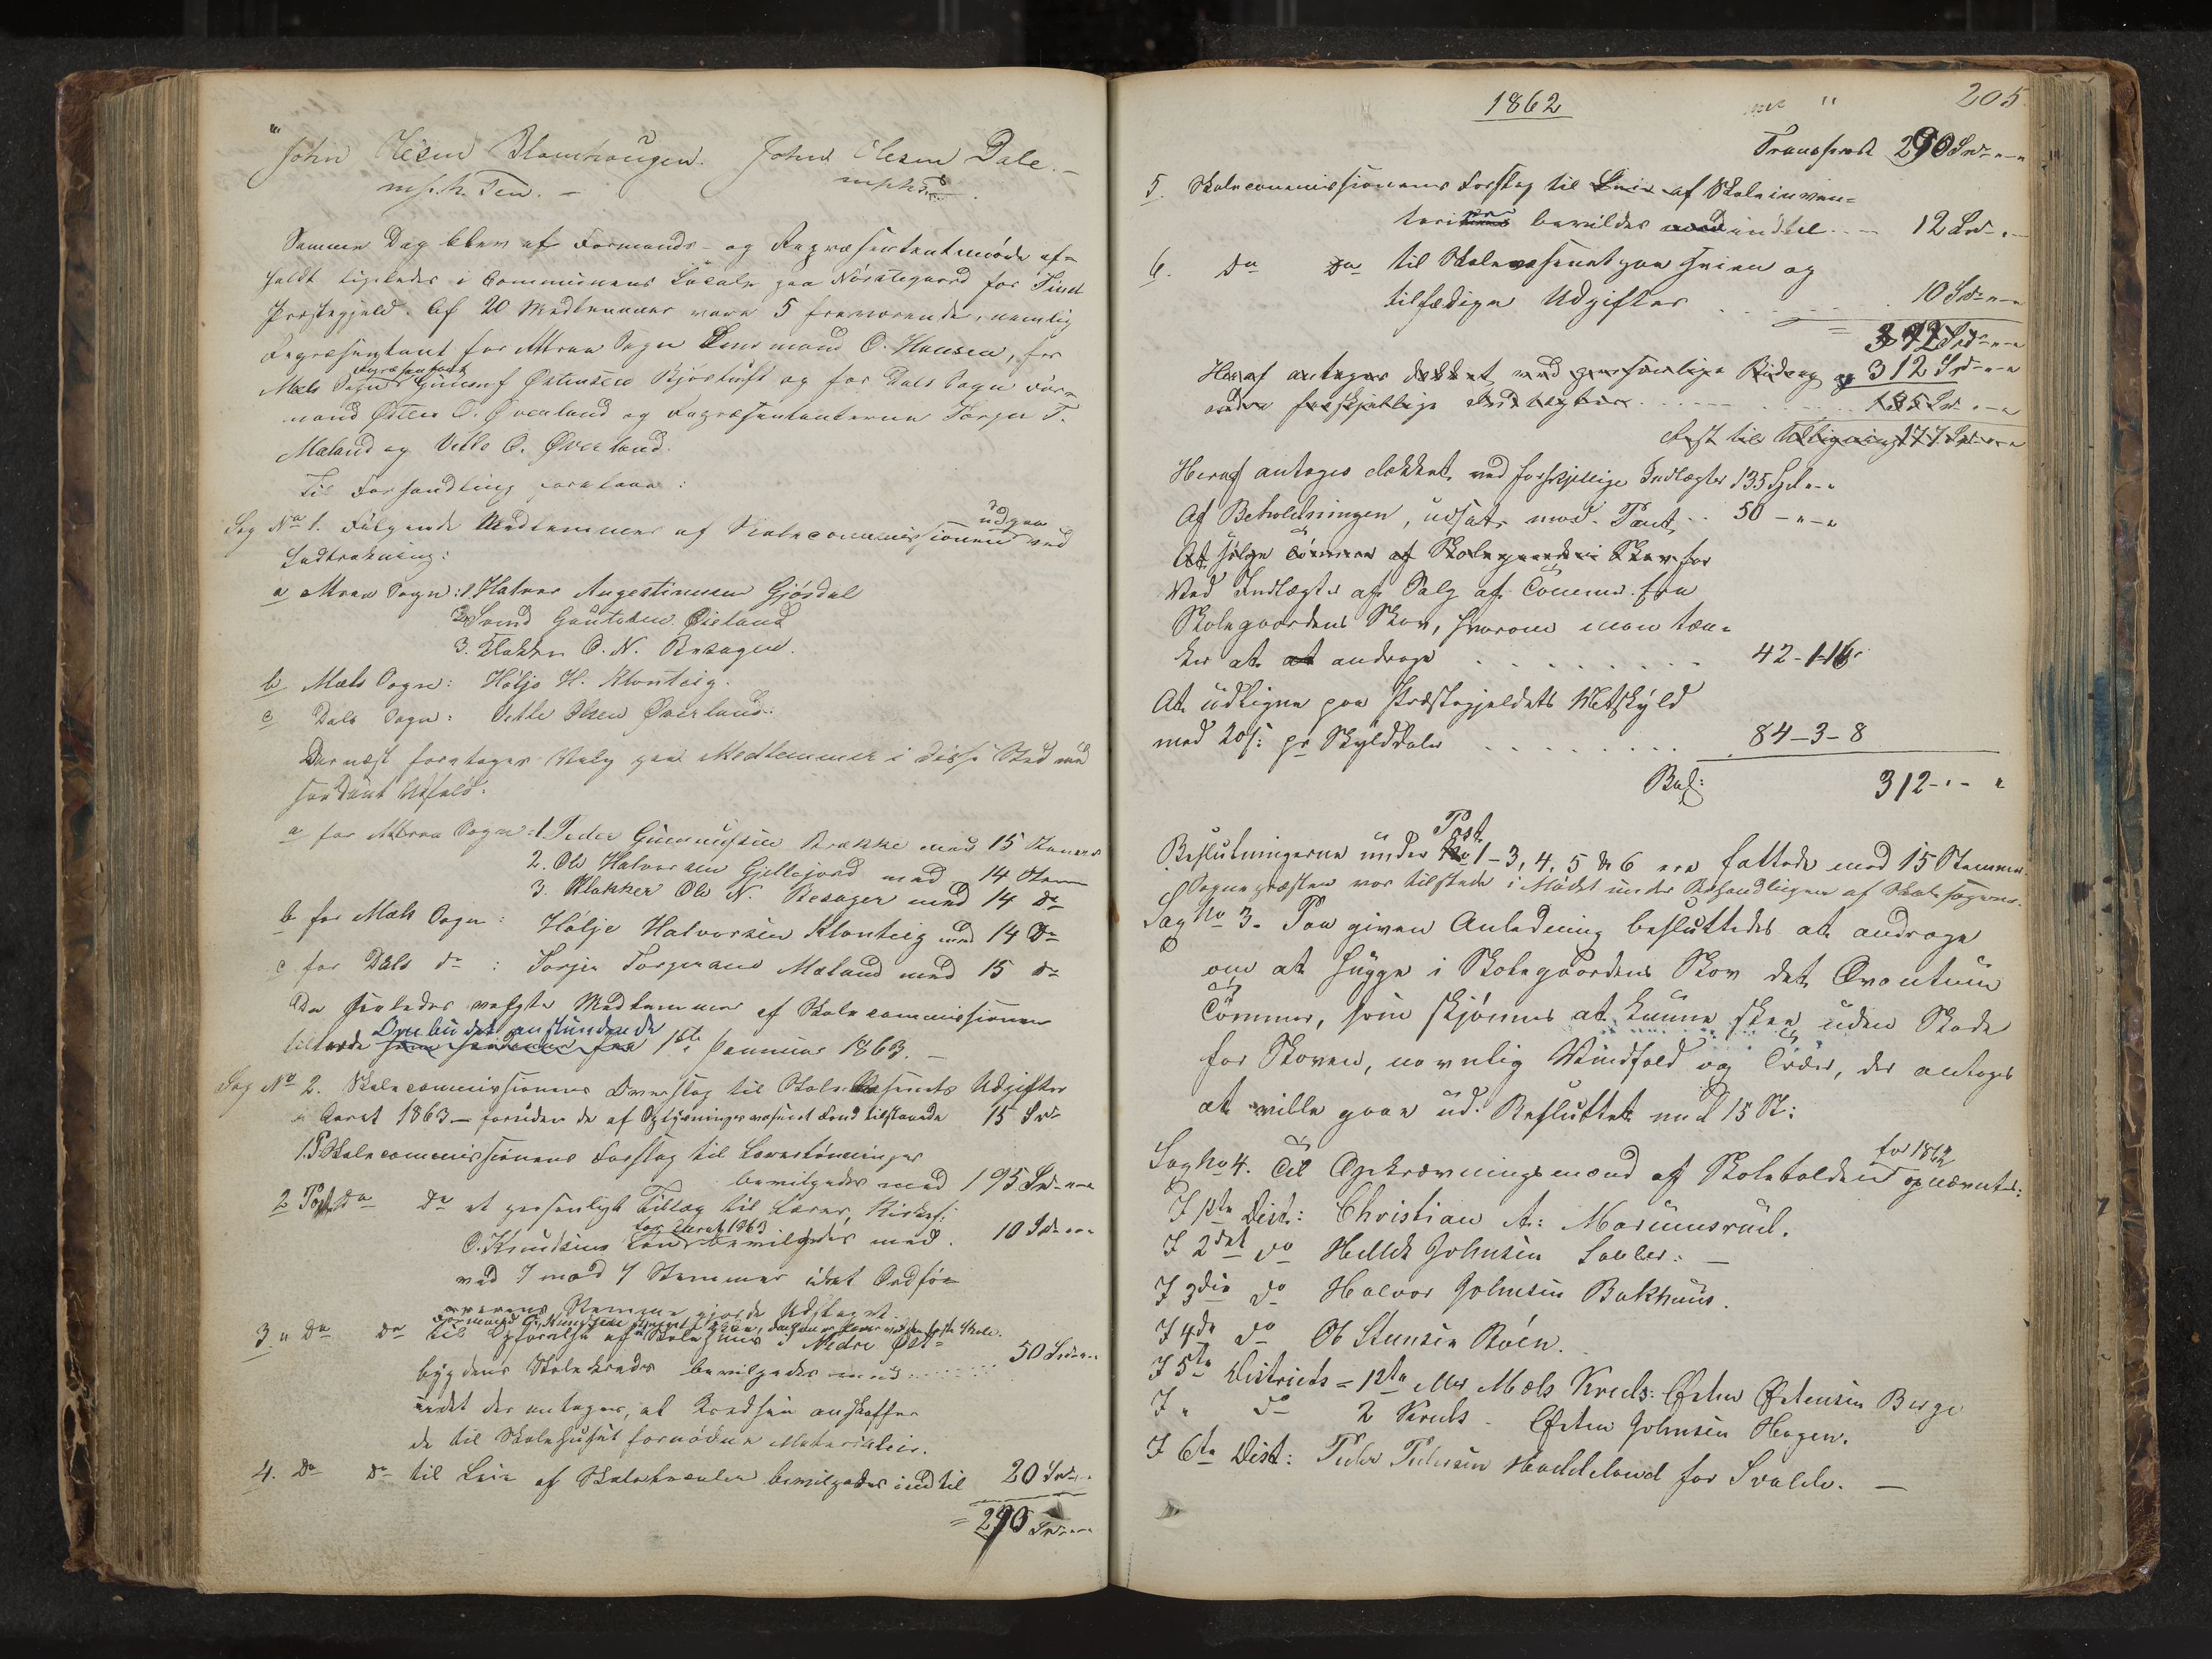 John Olsen Blomhaugen. John Olesen Dale. –
m/p.h. Pen. –
Samme Dag blev et Formands- og Repræsentantmöde af-
holdt ligeledes i Communens Locale paa Nöristegaard for Tind
Præstegjeld. Af 20 Medlemmer vare 5 fraværende, nemlig
Repræsentant for Attraa Sogn Lensmand O. Hansen, for
Mæls Sogn Repræsentant Gunnuf Östensen Bjørtuft og for Dals Sogn For-
mand Østen O. Øverland og Repræsentanterne Torger T.
Mæland og Vetle O. Øverland.
Til Forhandling foretoges:
Sag No 1. Fölgende Medlemmer af Skolecommissionen udgaa ved
Lodtrækning:
a Attraa Sogn: 1. Halvor Augestinusen Gjösdal
2. Svend Gautesen Øieland
3. Klokker O. N. Besager.
b Mæls Sogn: Höljo H. Kloumteig.
c Dals Sogn: Vetle Olsen Øverland.
Dernæst foretoges Valg paa Medlemmer i disses Sted med
saadant Udfald:
a for Attraa Sogn: 1. Peder Gunnufsen Brække med 15 Stemmer
2. Ole Halvorsen Gjellejord med 14 Stem
3. Klokker Ole N. Besager med 14 do
b for Mæls Sogn: Hölje Halvorsen Kloumteig med 14 Do
c for Dals do: Torjer Torgersens Mæland med 15 do
De saaledes valgte Medlemmer af Skolecommissionen
tiltræde Ombudet anstundende 1ste Januar 1863. –
Sag No 2. Skolecommissionens Overslag til Skolevæsenets Udgifter
i Aaret 1863 – foruden de af Oplysningsvæsenets Fond tilstaaede 15 Spd
1. P. Skolecommissionens Forslag til Lærerlönninger
bevilgedes med 195 Spd - " - "
2 Post Do do et personligt Tillæg til Lærer, Kirkes:
O. Knudsens Lön for Aaret 1863 bevilgedes med. 10 Spd - " - "
ved 7 mod 7 Stemmer idet Ordfö-
rerens Stemme gjorde Udslaget.
3. " Do do til Opförelse af Skolehuus i Nedre Øst-
bygdens Skolekreds bevilgedes med ...... 50 Spd - " - "
idet der antages, at Kredsen anskaffer
de til Skolehuset fornödne Materialier.
4. Do do til Leie af Skolelocaler bevilgedes indtil 20 Spd - " - "
= 290 Spd - " - "
1862
205
Transport 290 Spd - " - "
5. Skolecommissionens Forslag til Leie af Skoleinven-
tarium bevildes med indtil .. – 12 Spd - " -
6. do Do til Skolevæsenet paa Fyien og
tilfældige Udgifter ...... 10 Spd - " - "
= 312 Spd - " - "
Heraf antages dækket ved personlige Bidrag og 312 Spd - " - "
andre forskjellige Indtægter ........ 135 Spd - " - "
Rest til Udligning 177 Spd - " - "
Heraf antages dækket ved forskjellige Indtægter 135 Spd " - "
Af Beholdningen, udsat mod Pant .. 50 - " - "
At sælge Tömmer af Skolegaardens Skov for
Ved Indtægter af Salg af Tömmer fra
Skolegaardens Skov, hvorom man tæn-
ker at at andrage ........ 42 - 1 - 16
At udligne paa Præstegjeldets Matskyld
med 20 s: pr Skylddaler ........ 84 – 3 - 8
Bal: 312 - " - "
Beslutningerne under Post 1 – 3, 4, 5 & 6 ere fattede med 15 Stemmer.
Sognepræsten var tilstede i Mödet under Behandlingen af Skolesagerne.
Sag No 3. Paa given Anledning besluttedes at andrage
om at hugge i Skolegaardens Skov det Qvantum
Tömmer, som skjönnes at kunne skee uden Skade
for Skoven, navnlig Vindfald og Træer, der antages
at ville gaae ud. Besluttet med 15 St:
Sag No 4. Til Opkrævningsmænd af Skoletolden for 1862 opnævntes:
I 1ste Dist: Christian A: Marumsrud.
I 2det do Hellek Johnsen Lavler: –
I 3die do Halvor Johnsen Bakhuus.
I 4de do Ole Steensen Böen.
I 5te Districts = 1ste eller Mæls Kreds: Østen Østensen Berge
I " do 2 Kreds – Østen Johnsen Hagen.
I 6te Dist: Peder Pedersen Haddeland for Svadde. –